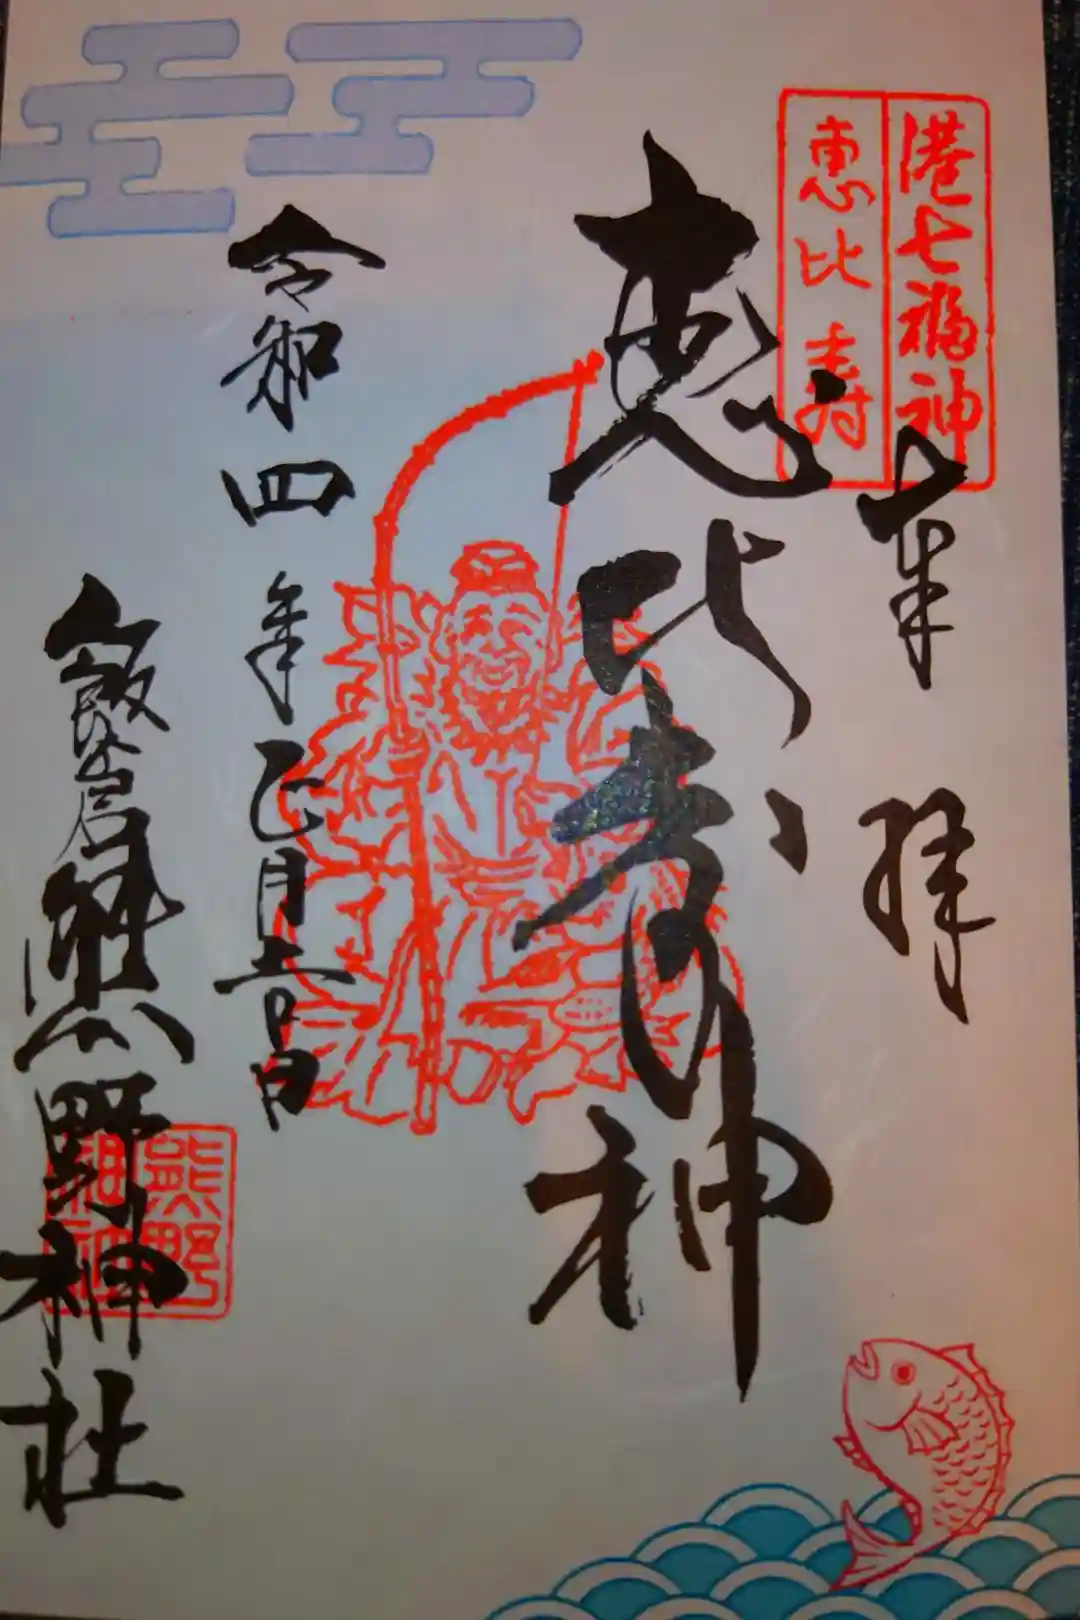 港七福神
恵比寿
奉拝
恵比寿神
令和四年正月吉日
飯倉熊野神社
熊野
神社